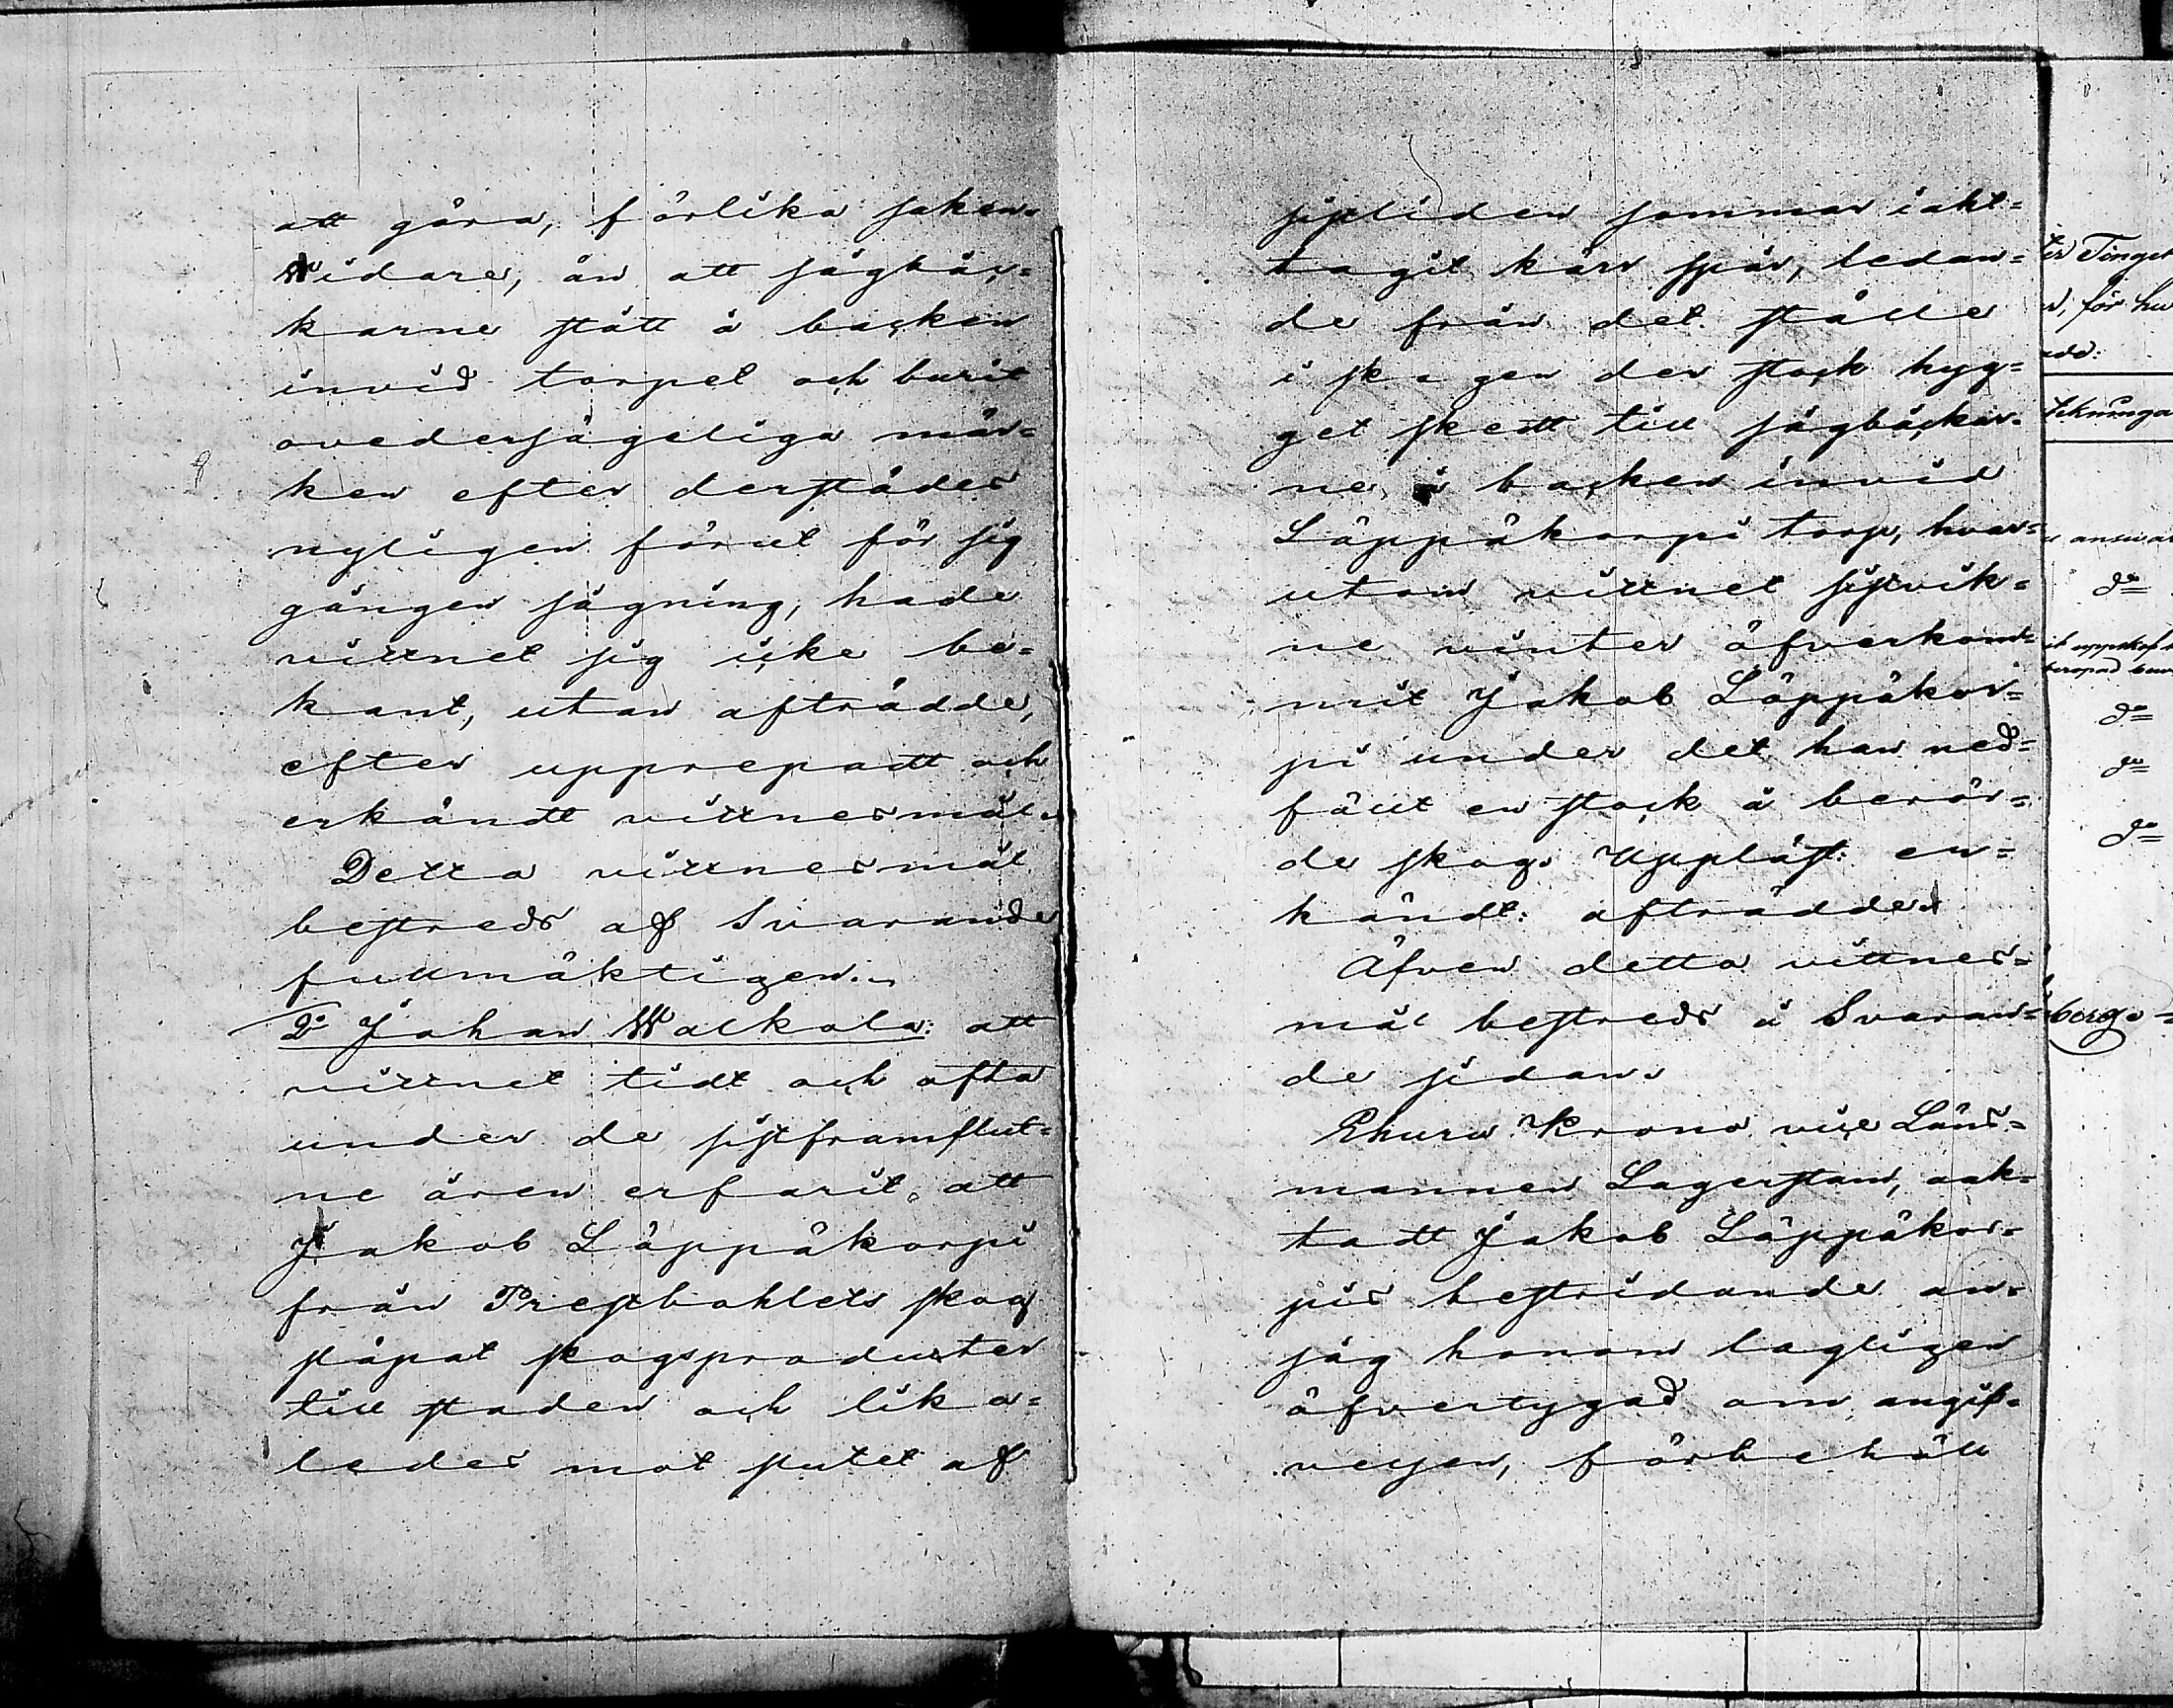 att göra, förlika saken.
Widare, än att sågbäc=
karne stått å backen
invid torpet och burit
ovedersägeliga mär=
ken efter derstädes
nyligen förut för sig
gången sågning, hade
vittnet sig icke be=
kant, utan afträdde,
efter upprepadt och
erkändt vittnesmål.
Detta vittnesmål
bestreds af Svarande
fullmäktigen.
2o Johan Walkola: att
vittnet tidt och ofta
under de sistframflut=
ne åren erfarit, att
Jakob Läppäkorpi
från Prestbohlets skog
släpat skogsprodukter
till staden och lika=
ledes mot slutet af
sistliden sommar iakt=
tagit körs spår, ledan=
de från det ställe
i skogen der stock hyg=
get skedt till sågbäckar=
ne å backen invid
Läppäkorpi torp, hvar=
utom vittnet sistvik=
ne vinter öfverkom=
mit Jakob Läppäkor=
pi under det han ned=
fällt en stock å berör=
de skog. Uppläst: er=
kändt: afträdde.
Äfven detta vittnes=
mål bestreds å Svaran=
de sidan.
Ehuru Krono vice Läns=
mannen Lagerstam, oak=
tadt Jakob Läppäkor=
pis bestridande an=
såg honom lagligen
öfvertygad om angif=
velsen, förbehöll
Tinget
, för hu
do
do
do
do
berg. =